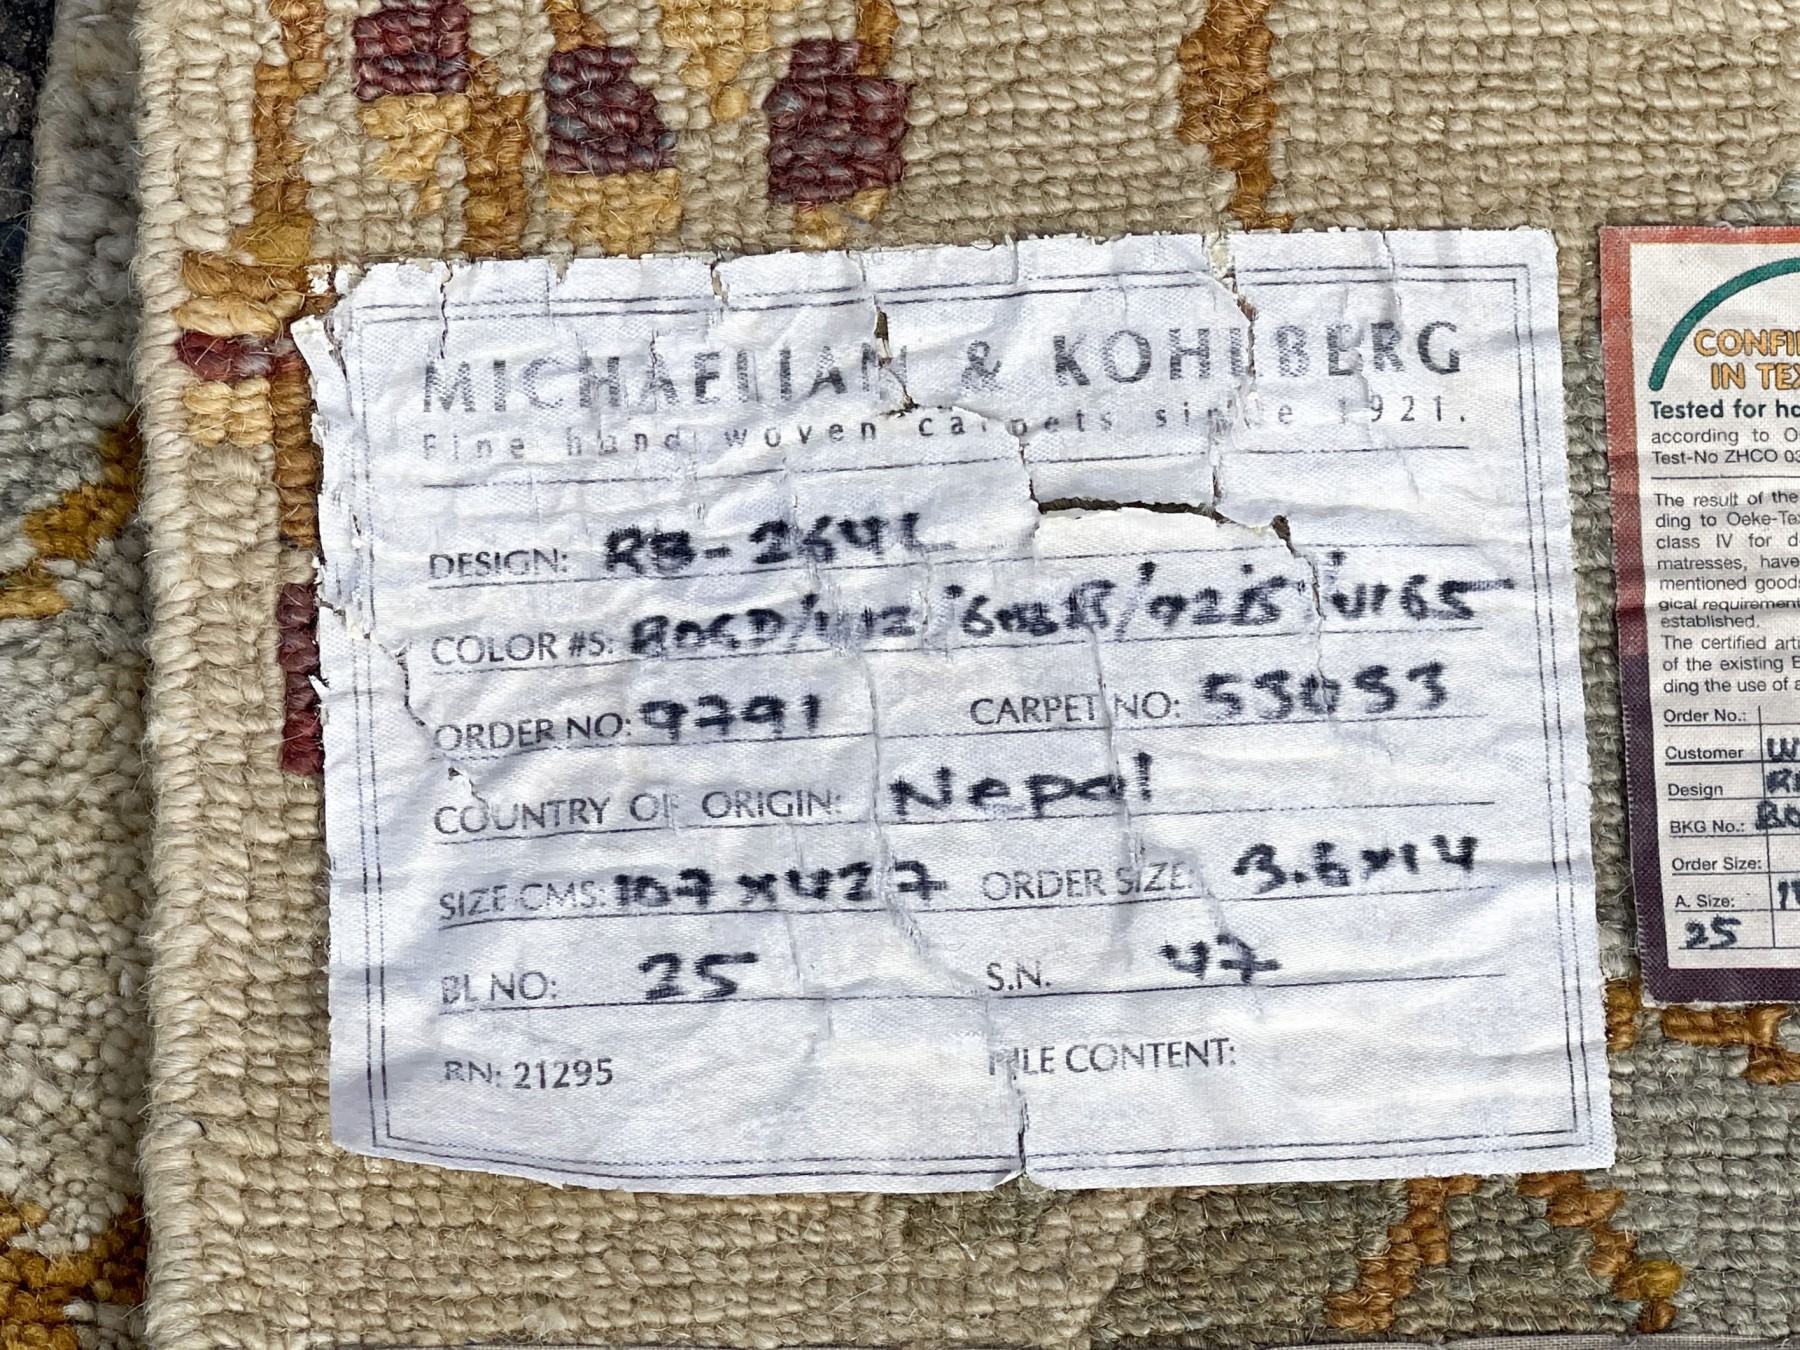 MICHAELIAN & KOHLBERG
Fine hand woven carpets since 1921.
DESIGN: RB-264L
COLOR #S:
ORDER NO: 9791 CARPET NO: 53053
COUNTRY OF ORIGIN: Nepal
SIZE CMS: 107 x 427 ORDER SIZE: 3.6 x 14
BL NO: 25 S.N. 47
RN: 21295 PILE CONTENT:
CONFI
IN TEX
Tested for ha
according to O
Test-No ZHCO 03
The result of the
ding to Oeke-Tex
class IV for d
matresses, have
mentioned goods
gical requirement
established.
The certified arti
of the existing E
ding the use of a
Order No.:
Customer
Design
BKG No.: BO
Order Size:
A. Size:
25